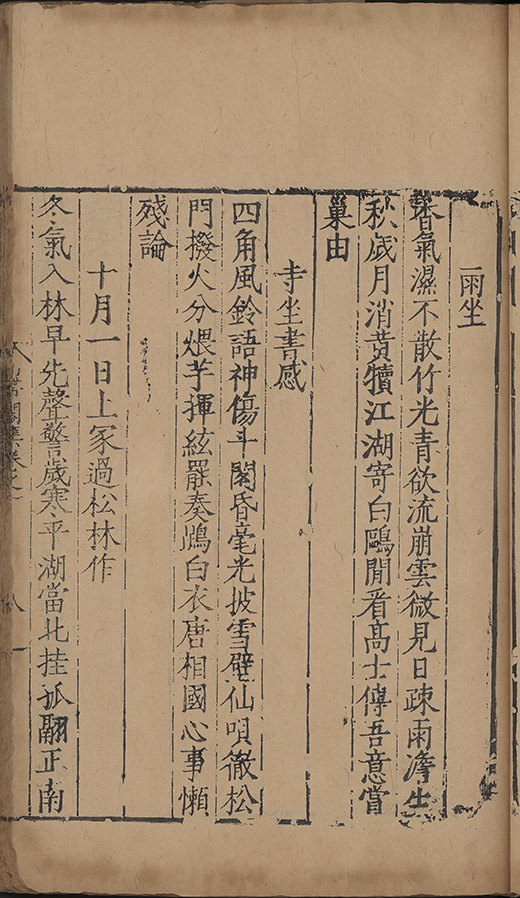 雨坐
香氣濕不散竹光青欲流崩雲微見日疎雨澹生
秋歲月消黃犢江湖寄白鷗閒看高士傳吾意賞
巢由
寺坐書感
四角風鈴語神傷斗閣昏毫光披雪壁仙唄徹松
門撥火分煨芋揮絃罷奏鵾白衣唐相國心事懶
殘論
十月一日上冢過松林作
冬氣入林早先聲警歲寒平湖當北挂孤翮正南